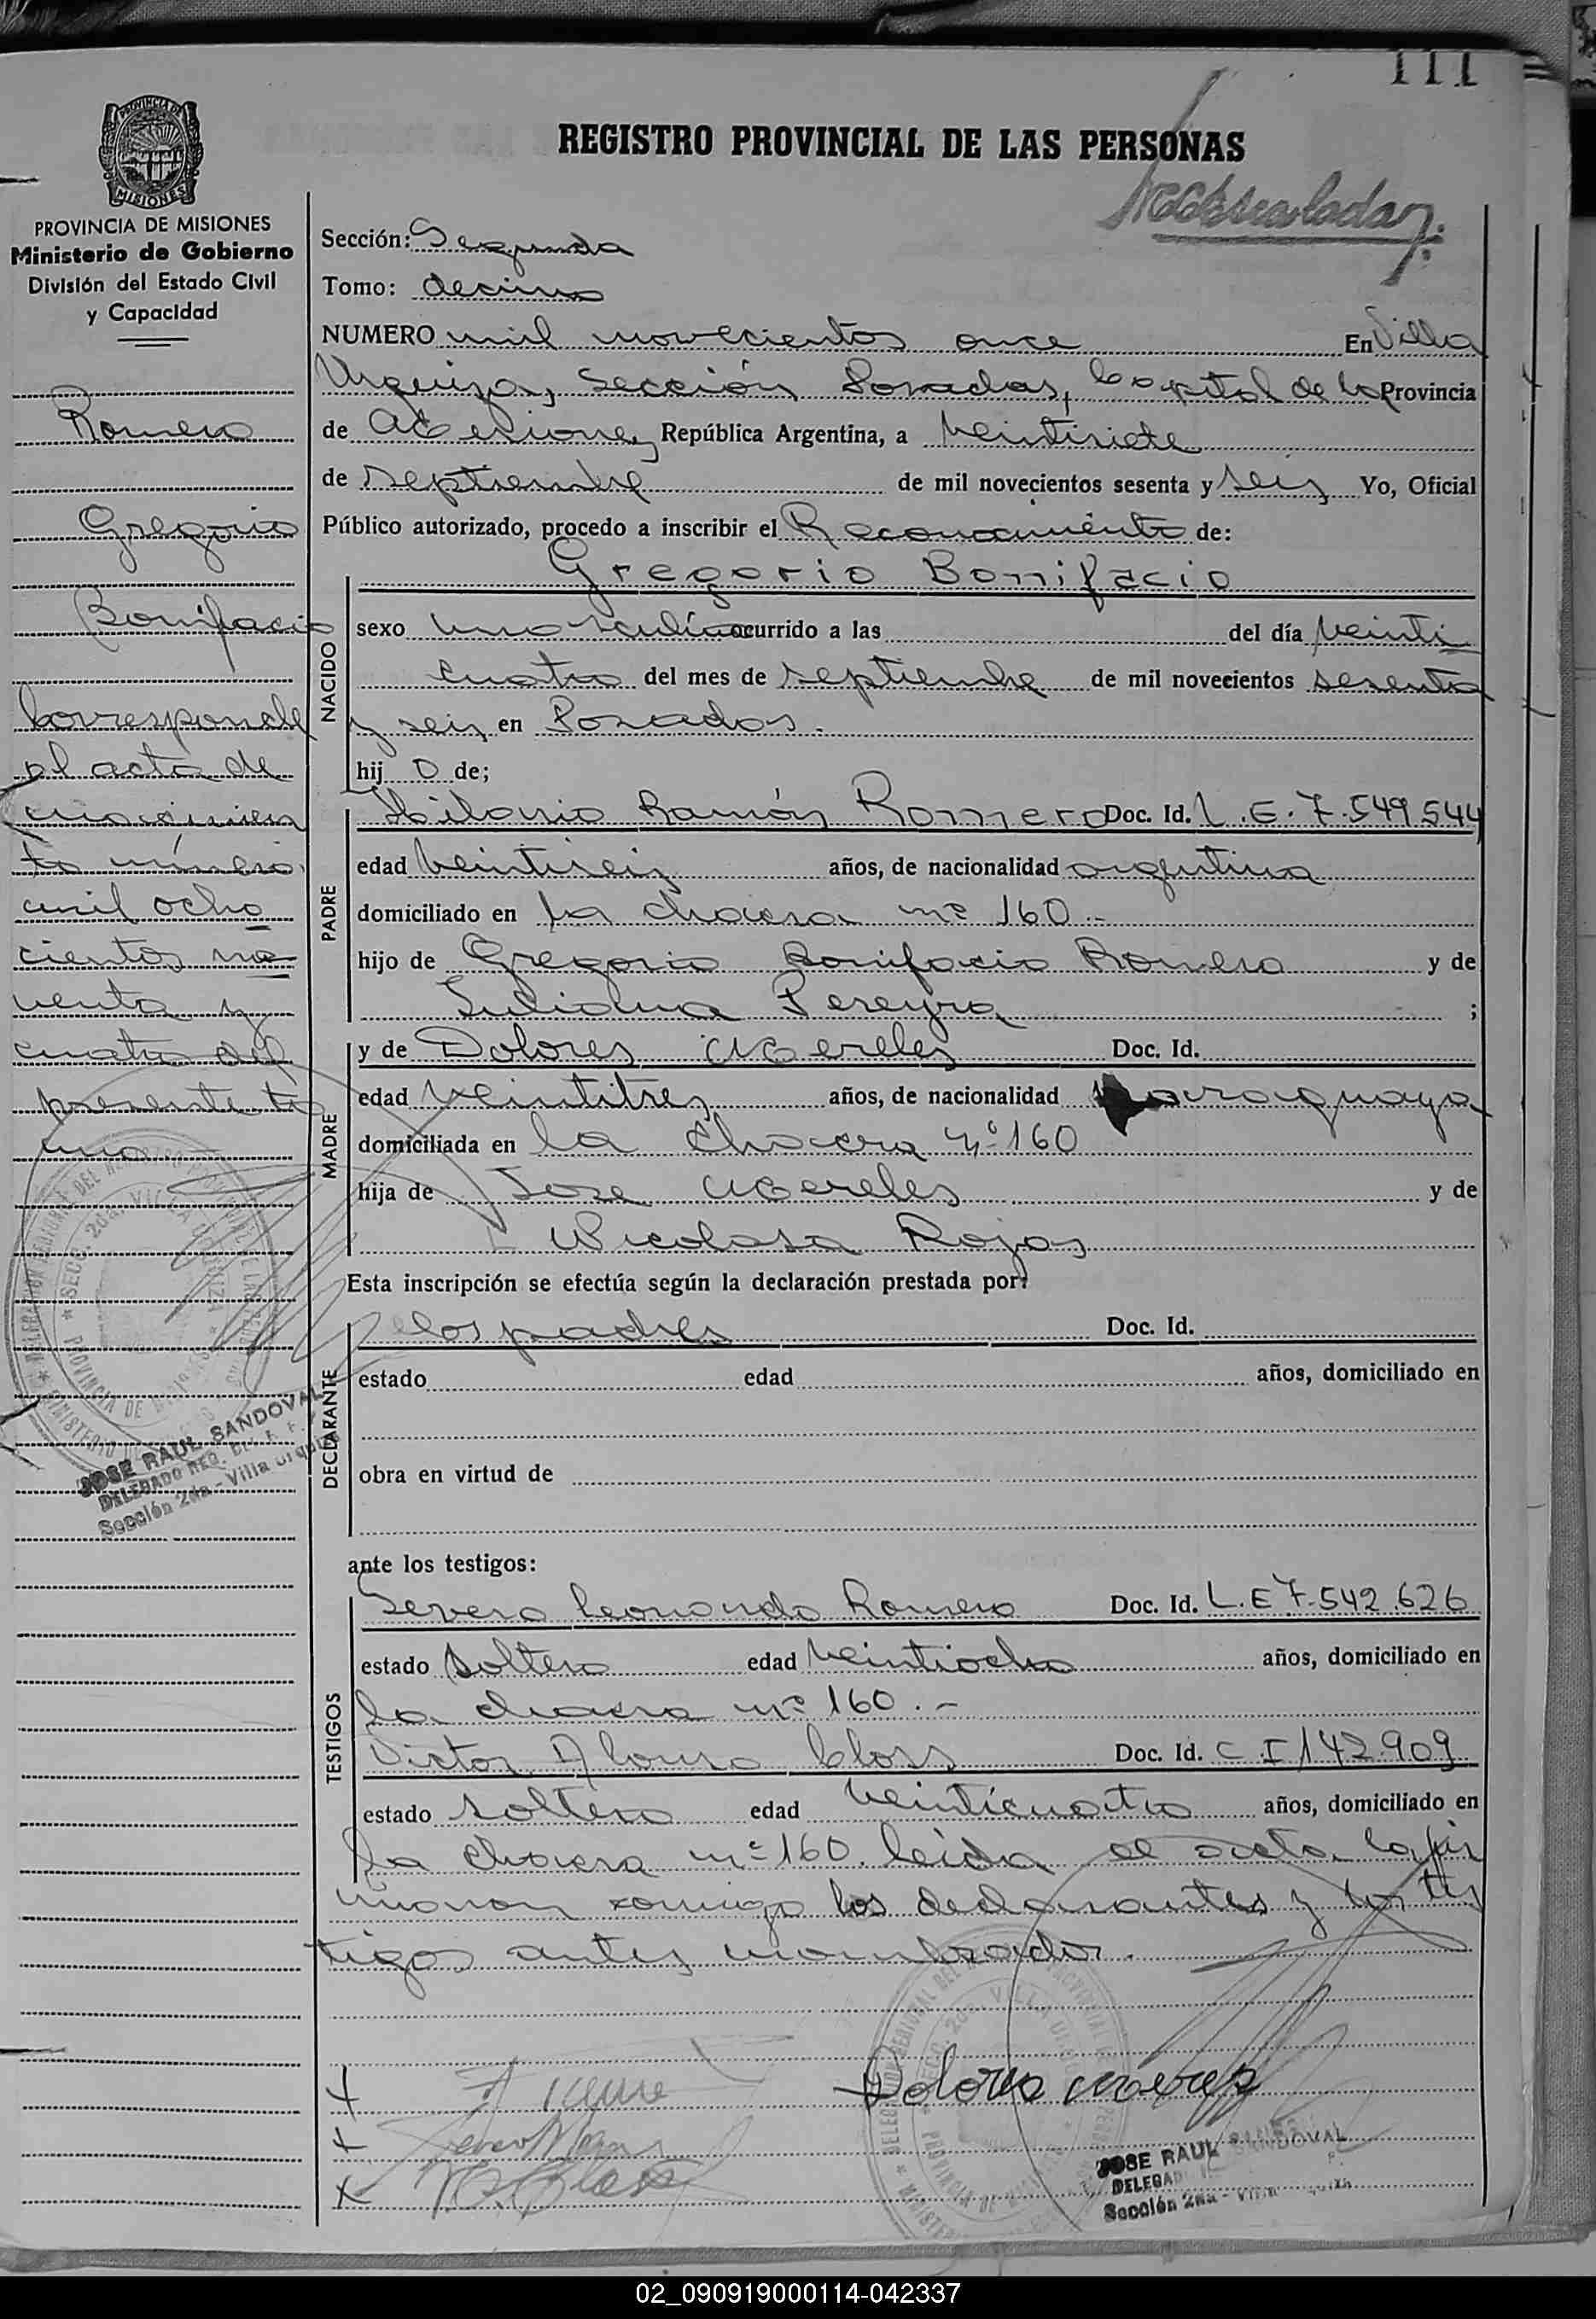 111
REGISTRO PROVINCIAL DE LAS PERSONAS
PROVINCIA DE
MISIONES
PROVINCIA DE MISIONES
Ministerio de Gobierno
División del Estado Civil
y Capacidad
Romero
Gregorio
Bonifacio
Corresponde
al acta de
nacimien
to número
mil ocho
cientos no
venta y
cuatro del
presente to
mo
JOSE RAUL SANDOVAL
DELEGADO REG.
Sección 2da - Villa Urquiza
Sección: Segunda
Tomo: decimo
NUMERO mil novecientos once En Villa
Urquiza, Sección Posadas, Capital de la Provincia
de Misiones, República Argentina, a veintisiete
de septiembre de mil novecientos sesenta y seis Yo, Oficial
Público autorizado, procedo a inscribir el Reconocimiento de:
Gregorio Bonifacio
NACIDO
sexo masculino ocurrido a las del día veinti
cuatro del mes de septiembre de mil novecientos sesenta
y seis en Posadas.
hij o de;
PADRE
Hilario Ramón Romero Doc. Id. L.E. 7.549.544
edad veintiseis años, de nacionalidad argentina
domiciliado en la chacra nº 160.-
hijo de Gregorio Bonifacio Romero y de
Juliana Pereyra ;
MADRE
y de Dolores Mereles Doc. Id.
edad veintitres años, de nacionalidad paraguaya
domiciliada en la chacra nº 160
hija de Jose Mereles y de
Nicolasa Rojas
Esta inscripción se efectúa según la declaración prestada por:
DECLARANTE
los padres Doc. Id.
estado edad años, domiciliado en
obra en virtud de
ante los testigos:
TESTIGOS
Severo Leonardo Romero Doc. Id. L.E 7.542.626
estado soltero edad veintiocho años, domiciliado en
la chacra nº 160.-
Victor Alonso Closs Doc. Id. C I 142.909
estado soltero edad veinticuatro años, domiciliado en
la chacra nº 160. leida el acta la fir
maron conmigo los declarantes y los tes
tigos antes nombrados.
Dolores
JOSE RAUL SANDOVAL
DELEGAD
Sección 2da -
02_090919000114-042337